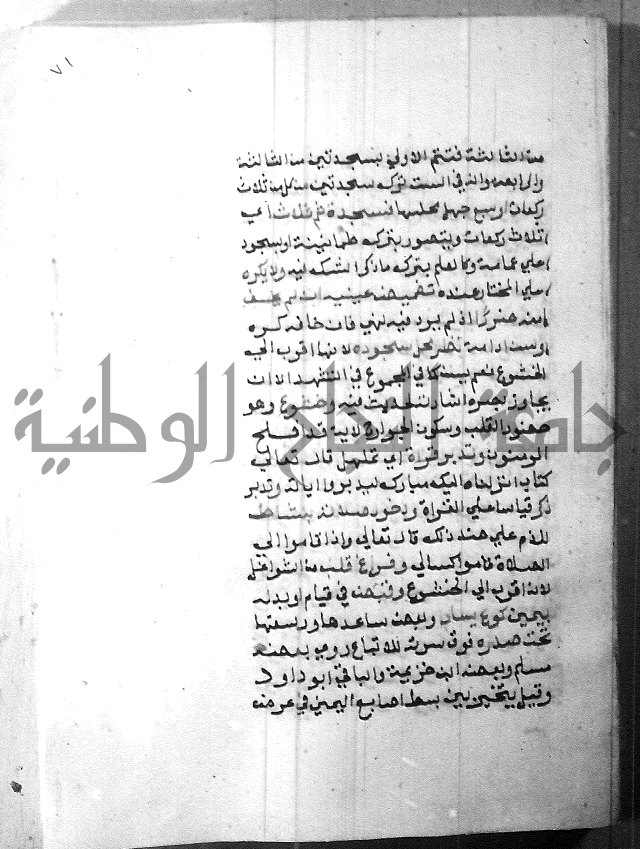 ٧١
من الثالثة فتتم الاولي بسجدتين من الثالثة
والرابعة وانه في الست ترك سجدتين من كل من ثلاث
ركعات او سبع جهل محلها فسجدة ثم ثلاث اي
ثلاث ركعات ويتصور بترك طمانينة او سجود
علي عمامة وكالعلم بترك ما ذكر الشك فيه ولا يكره
علي المختار عنده تغميض عينيه ان لم يخف
منه ضررا اذ لم يرد فيه نهي فان خافه كره
وسن ادامة نظر محل سجوده لانها اقرب الي
الخشوع نعم يسن كما في المجموع في التشهد الا ان
يجاوز بصره اشارته لحديث فيه وخشوع وهو
حضور القلب وسكون الجوارح لاية قد افلح
المومنون وتدبر قراة اي تاملها قال تعالي
كتاب انزلناه اليك مبارك ليدبروا اياته وتدبر
ذكر قياسا علي القراة ودخول صلاة بنشاط
للذم علي ضد ذلك قال تعالي واذا قاموا الي
الصلاة قاموا كسالي وفراغ قلب من الشواغل
لانه اقرب الي الخشوع وقبض في قيام او بدله
بيمين كوع يسار وبعض ساعدها ورسغها
تحت صدره فوق سرته للاتباع روي بعضه
مسلم وبعضه ابن خزيمة والباقي ابو داود
وقيل يتخير بين بسط اصابع اليمين في عرض
جامعة النجاح الوطنية